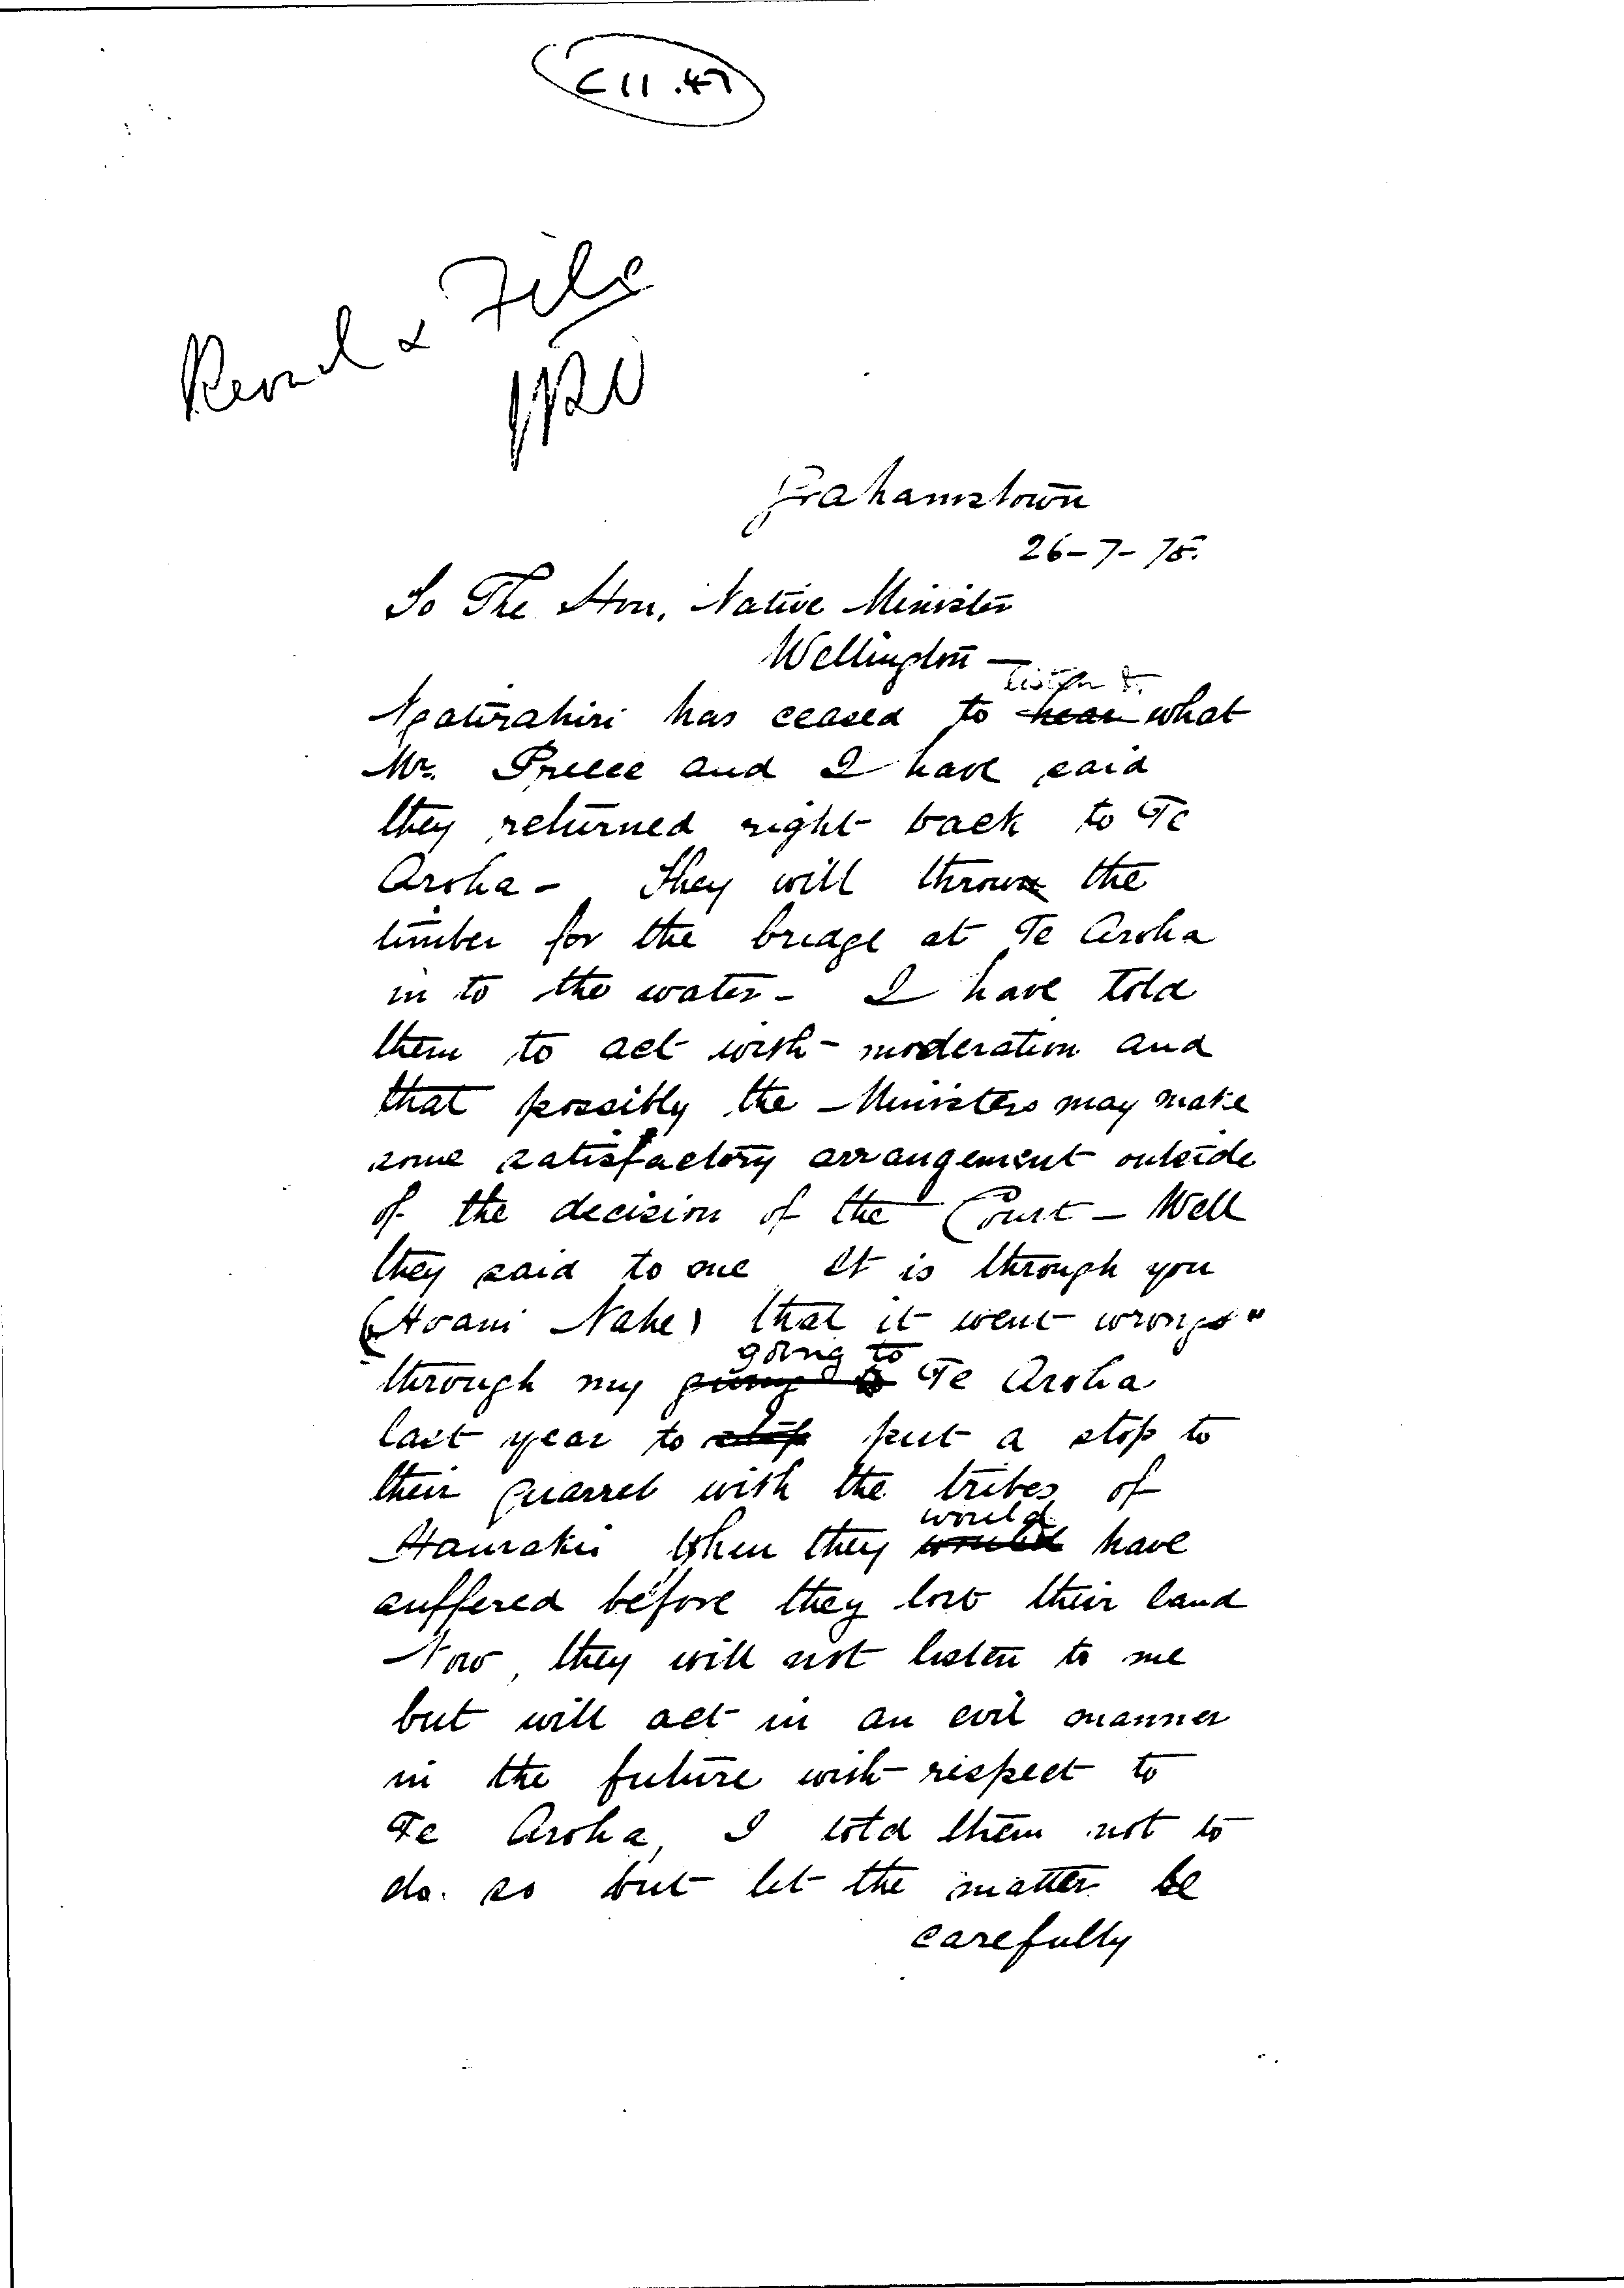 C11.47
Record & File
Grahamstown
26-7-75.
To The Hon. Native Minister
Wellington —
listen to
Ngatirahiri has ceased to hear what
Mr. Preece and I have said
they returned right back to Te
Aroha - They will throw the
timber for the bridge at Te Aroha
in to the water - I have told
them to act with moderation and
that possibly the Ministers may make
some satisfactory arrangement outside
of the decision of the Court - Well
they said to me It is through you
(Hoani Nahe) that it went wrong"
going to
through my going to Te Aroha
last year to stop put a stop to
their quarrel with the tribes of
would
Hauraki when they would have
suffered before they lost their land
Now, they will not listen to me
but will act in an evil manner
in the future with respect to
Te Aroha, I told them not to
do. so but let the matter be
carefully